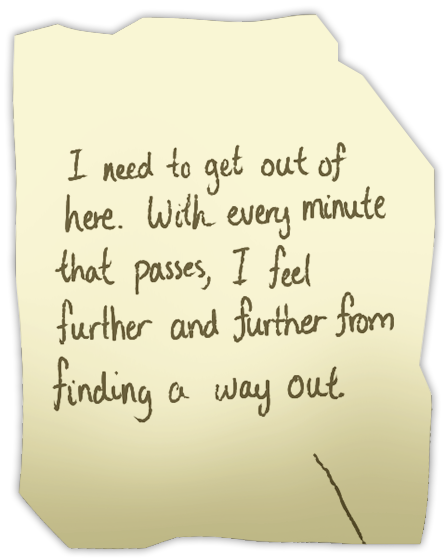 I need to get out of
here. With every minute
that passes, I feel
further and further from
finding a way out.